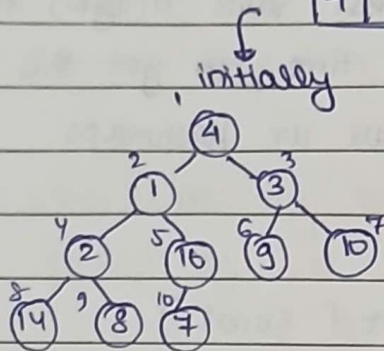 1
initially
1 4
2 1 3 3
4 2 5 16 6 9 7 10
8 14 9 8 10 7